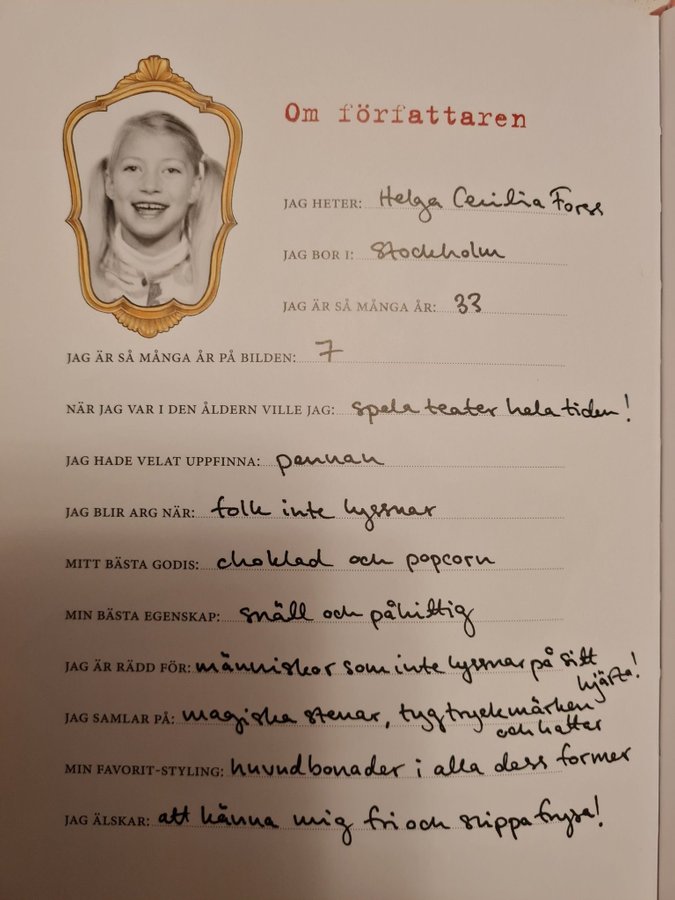 Om författaren
JAG HETER: Helga Cecilia Forss
JAG BOR I: Stockholm
JAG ÄR SÅ MÅNGA ÅR: 33
JAG ÄR SÅ MÅNGA ÅR PÅ BILDEN: 7
NÄR JAG VAR I DEN ÅLDERN VILLE JAG: spela teater hela tiden!
JAG HADE VELAT UPPFINNA: pennan
JAG BLIR ARG NÄR: folk inte lyssnar
MITT BÄSTA GODIS: choklad och popcorn
MIN BÄSTA EGENSKAP: snäll och påhittig
JAG ÄR RÄDD FÖR: människor som inte lyssnar på sitt
hjärta!
JAG SAMLAR PÅ: magiska stenar, tygtryckmärken
och hattar
MIN FAVORIT-STYLING: huvudbonader i alla dess former
JAG ÄLSKAR: att känna mig fri och slippa frysa!